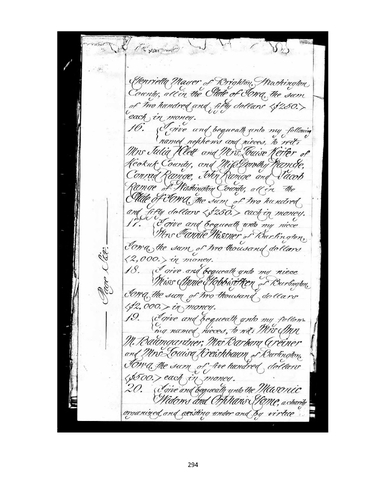 Henrietta Maurer of Brighton, Washington
County, all in the State of Iowa, the sum
of two hundred and fifty dollars ($250.)
each in money.
16. I give and bequeath unto my following
named nephews and nieces, to wit:
Mrs Julia Klett and Mrs Louisa Keiter of
Keokuk County, and Miss Dorothy Ramge,
Conrad Ramge, John Ramge and Jacob
Ramge of Washington County, all in the
State of Iowa, the sum of two hundred
and fifty dollars ($250.) each in money.
17. I give and bequeath unto my niece
Mrs Fannie Misner of Burlington,
Iowa, the sum of two thousand dollars
($2,000.) in money.
18. I give and bequeath unto my niece
Miss Annie of Burlington
Iowa, the sum of two thousand dollars
($2,000.) in money.
19. I give and bequeath unto my follow-
ing named nieces, to wit: Miss Ann
M. Baumgardner, Mrs Barbara Greiner
and Mrs Louisa Kirschbaum of Burlington,
Iowa, the sum of five hundred dollars
($500.) each in money.
20. I give and bequeath unto the Masonic
Widows and Orphans Home, a charity
organized and existing under and by virtue
Page Six.
294